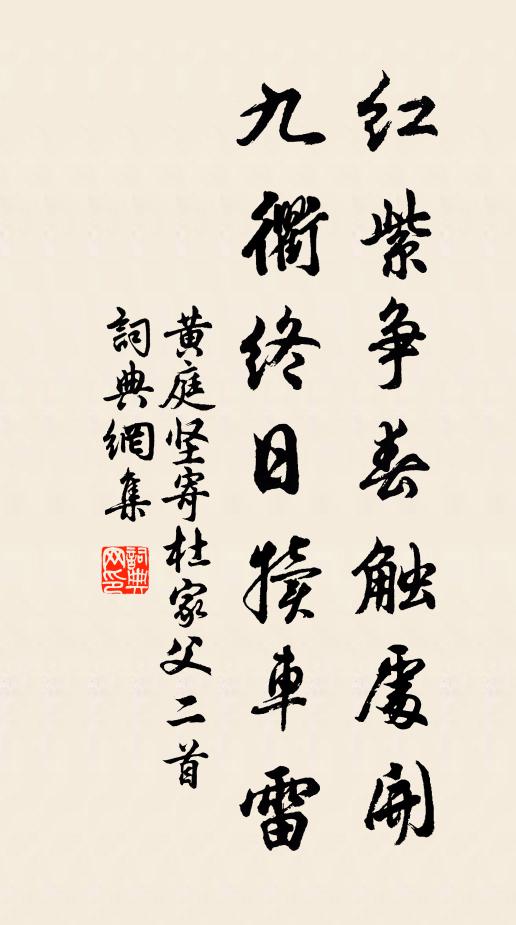 红紫争春触處開
九衢终日犢車雷
黄庭坚寄杜家父二首
詞典網集
詞典网印